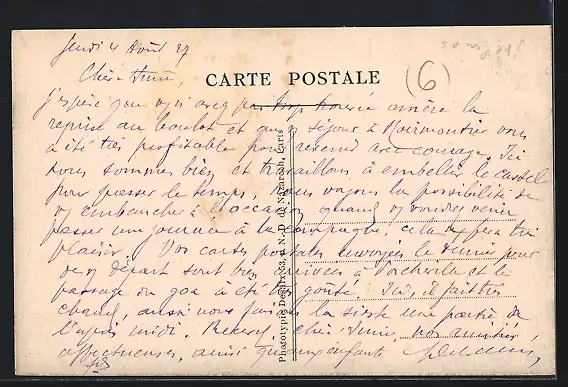 Jeudi 4 Août 27
Chère amie,
CARTE POSTALE
6
j'espère que v n'avez pas trop trouvé amère la
reprise au boulot et que séjour à Noirmoutier vous
a été très profitable pour revenir avec courage. Ici
nous sommes bien et travaillons à embellir le castel
pour passer le temps, nous voyons la possibilité de
v embaucher à l'occasion quand v voudrez venir
passer une journée à la campagne, cela ns fera très
plaisir. Vos cartes postales envoyées le pour
départ sont bien arrivées à et le
passage du goa a été très goûté. Ici, il fait très
chaud, aussi nous faisons la sieste une partie de
l'après midi. Recevez, chère amie, nos amitiés
affectueuses, ainsi que enfants
Phototypie Desaix, 63, r. N.-D. de Nazareth, Paris